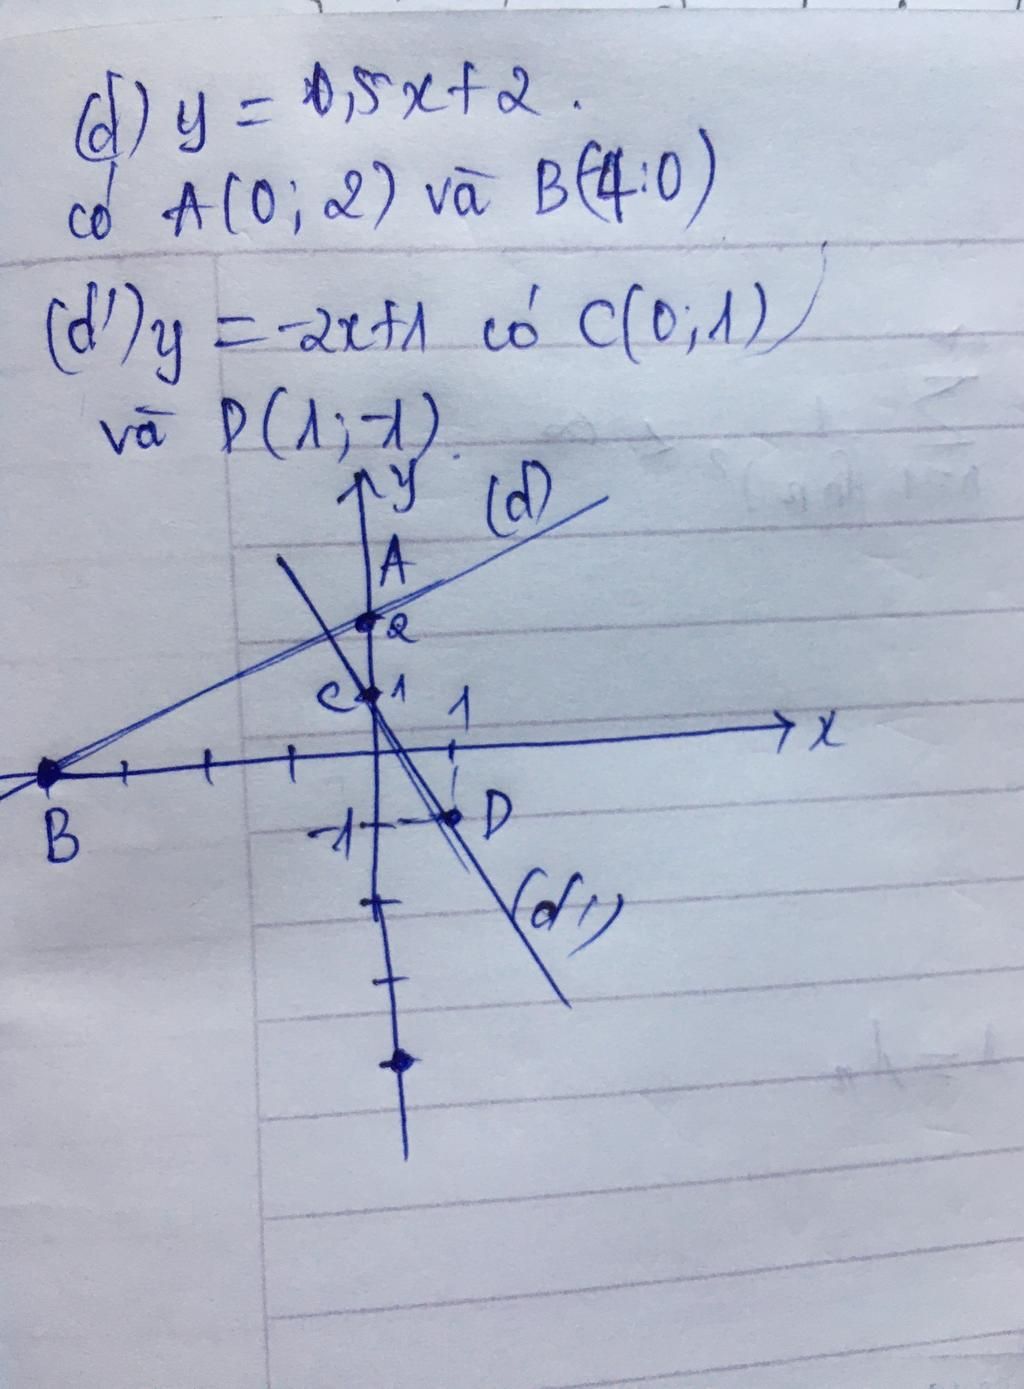 (d) y = 0,5x+2.
có A(0; 2) và B(-4;0)
(d') y = -2x+1 có C(0;1)
và D(1;-1).
y
(d)
A
2
C 1
1
x
B
-1
D
(d')